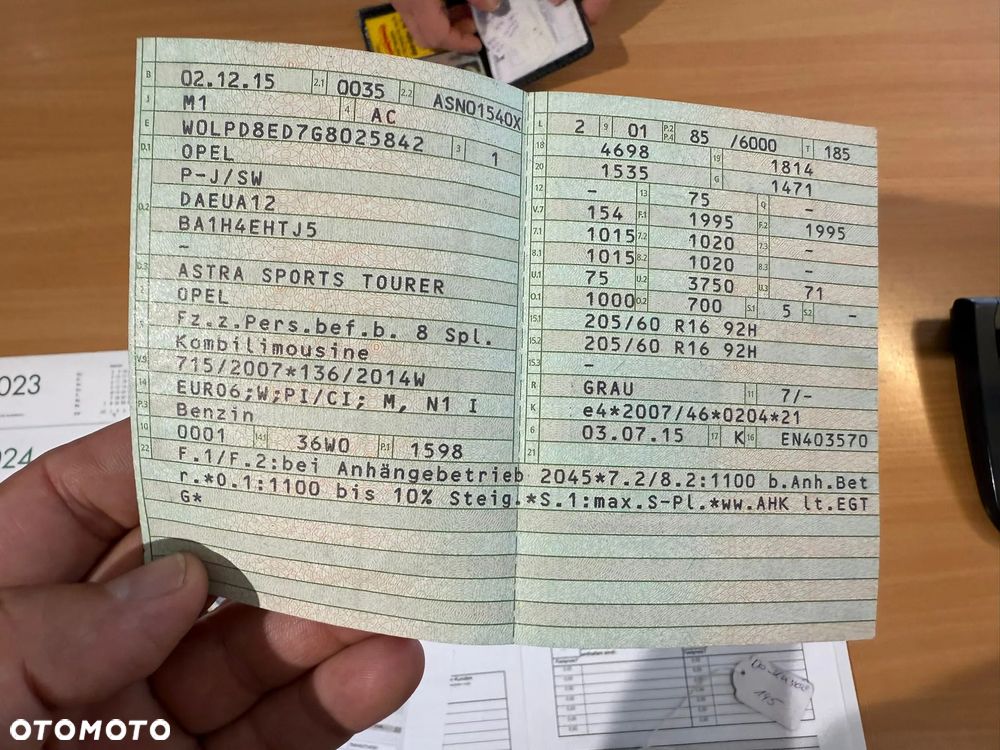 B 02.12.15 2.1 0035 2.2 ASN01540X
J M1 4 AC
E W0LPD8ED7G8025842 3 1
D.1 OPEL
P-J/SW
D.2 DAEUA12
BA1H4EHTJ5
–
D.3 ASTRA SPORTS TOURER
2 OPEL
5 Fz.z.Pers.bef.b. 8 Spl.
Kombilimousine
V.9 715/2007*136/2014W
14 EURO6;W;PI/CI; M, N1 I
P.3 Benzin
10 0001 14.1 36W0 P.1 1598
L 2 9 01 P.2 P.4 85 /6000 T 185
18 4698 19 1814
20 1535 G 1471
12 – 13 75 Q –
V.7 154 F.1 1995 F.2 1995
7.1 1015 7.2 1020 7.3 –
8.1 1015 8.2 1020 8.3 –
U.1 75 U.2 3750 U.3 71
O.1 1000 O.2 700 S.1 5 S.2 –
15.1 205/60 R16 92H
15.2 205/60 R16 92H
15.3 –
R GRAU 11 7/–
K e4*2007/46*0204*21
6 03.07.15 17 K 16 EN403570
21
22 F.1/F.2:bei Anhängebetrieb 2045*7.2/8.2:1100 b.Anh.Bet
r.*O.1:1100 bis 10% Steig.*S.1:max.S-Pl.*ww.AHK lt.EGT
G*
2023
024
195
OTOMOTO